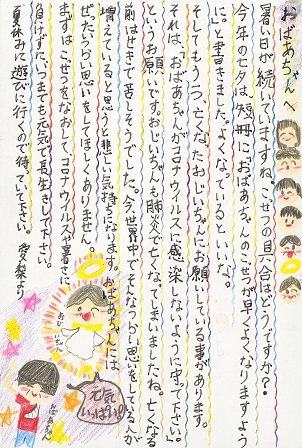 おばあちゃんへ
暑い日が続いていますね。こせつの具合はどうですか?
今年の七夕は、短冊に「おばあちゃんのこせつが早くよくなりますよう
に。」と書きました。よくなっているといいな。
そしてもう一つ、亡くなったおじいちゃんにお願いしている事があります。
それは、「おばあちゃんがコロナウイルスに感染しないように守って下さい。」
というお願いです。おじいちゃんも肺炎で亡くなってしまいましたね。亡くなる
前はせきで苦しそうでした。今、世界中でそんなつらい思いをしている人が
増えていると思うと悲しい気持ちになります。おばあちゃんには、
ぜったいつらい思いをしてほしくありません。
まずは、こせつをなおして、コロナウイルスや暑さに
負けずに、いつまでも元気で長生きして下さい。
夏休みに遊びに行くので待っていて下さい。
より
おじいちゃん
元気いっぱい!!
おばあちゃん